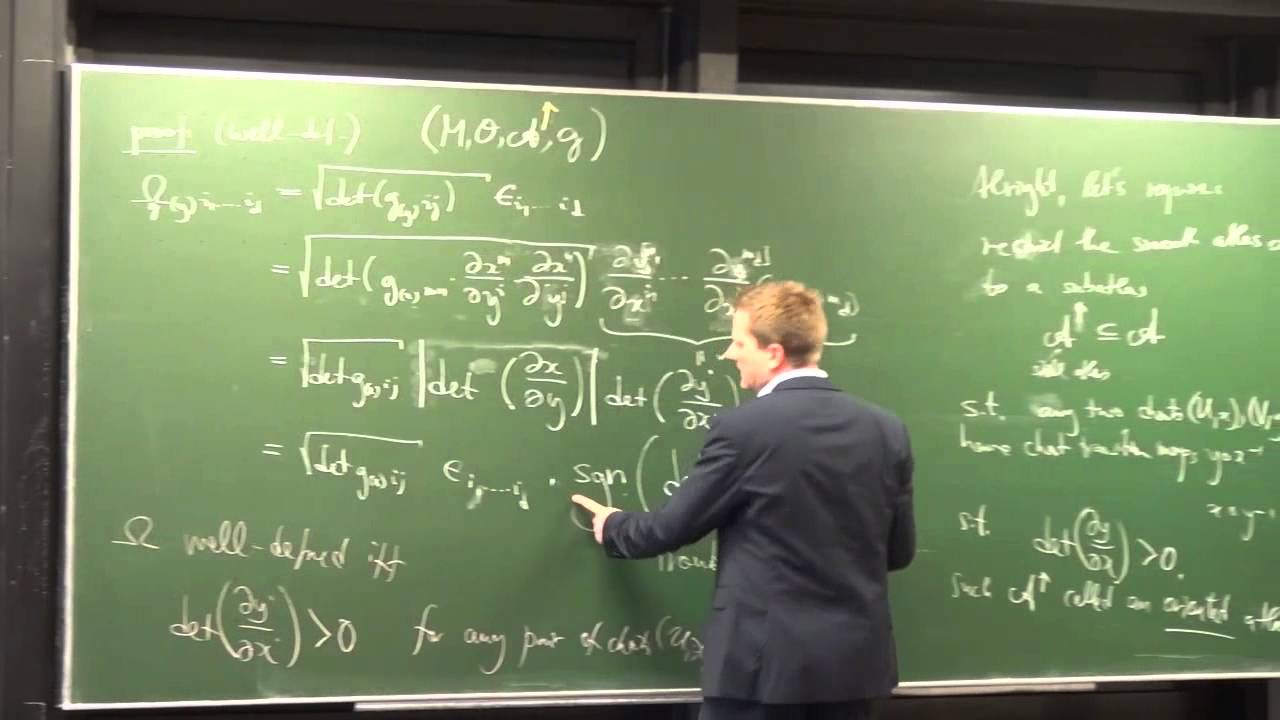 proof: (well-def.) (M, O, A↑, g)
Ω(y) i₁....i_d = √det(g(y)ij) ϵi₁....i_d
= √det(g(x)mn · ∂xᵐ/∂yⁱ ∂xⁿ/∂yʲ) ∂y^m₁/∂x^i₁ .... ∂y^m_d/∂x
= √det g(x)ij |det (∂x/∂y)| det(∂yⁱ/∂xʲ)
= √det g(x)ij ϵi₁....i_d · sgn (
Ω well-defined iff
det(∂yⁱ/∂xʲ) > 0 for any pair of charts (U,x)
Alright, let's
restrict the smooth atlas
to a subatlas
A↑ ⊆ A
s.t. any two charts (U,x), (V,
have chart transition maps y∘x⁻¹
x∘y⁻¹
s.t. det(∂y/∂x) > 0.
Such A↑ called an oriented